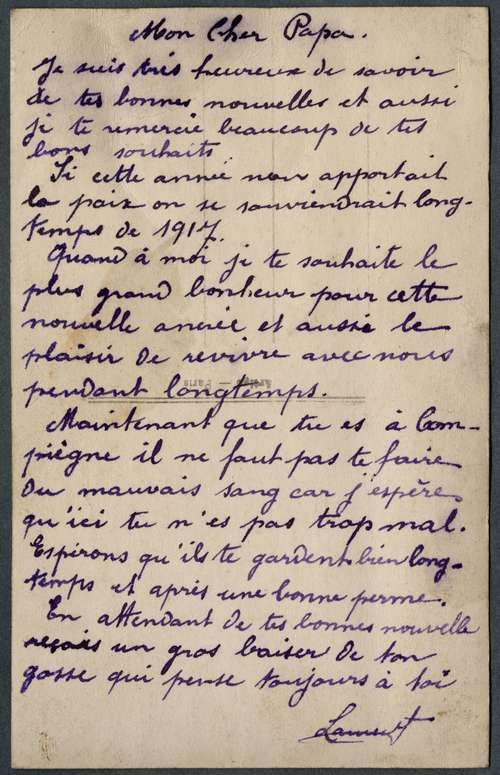 Mon Cher Papa.
Je suis très heureux de savoir
de tes bonnes nouvelles et aussi
je te remercie beaucoup de tes
bons souhaits
Si cette année nous apportait
la paix on se souviendrait long-
temps de 1917.
Quand à moi je te souhaite le
plus grand bonheur pour cette
nouvelle année et aussi le
plaisir de revivre avec nous
pendant longtemps.
Maintenant que tu es à Com-
piègne il ne faut pas te faire
du mauvais sang car j'espère
qu'ici tu n'es pas trop mal.
Espérons qu'ils te gardent bien long-
temps et après une bonne perme.
En attendant de tes bonnes nouvelle
reçois un gros baiser de ton
gosse qui pense toujours à toi